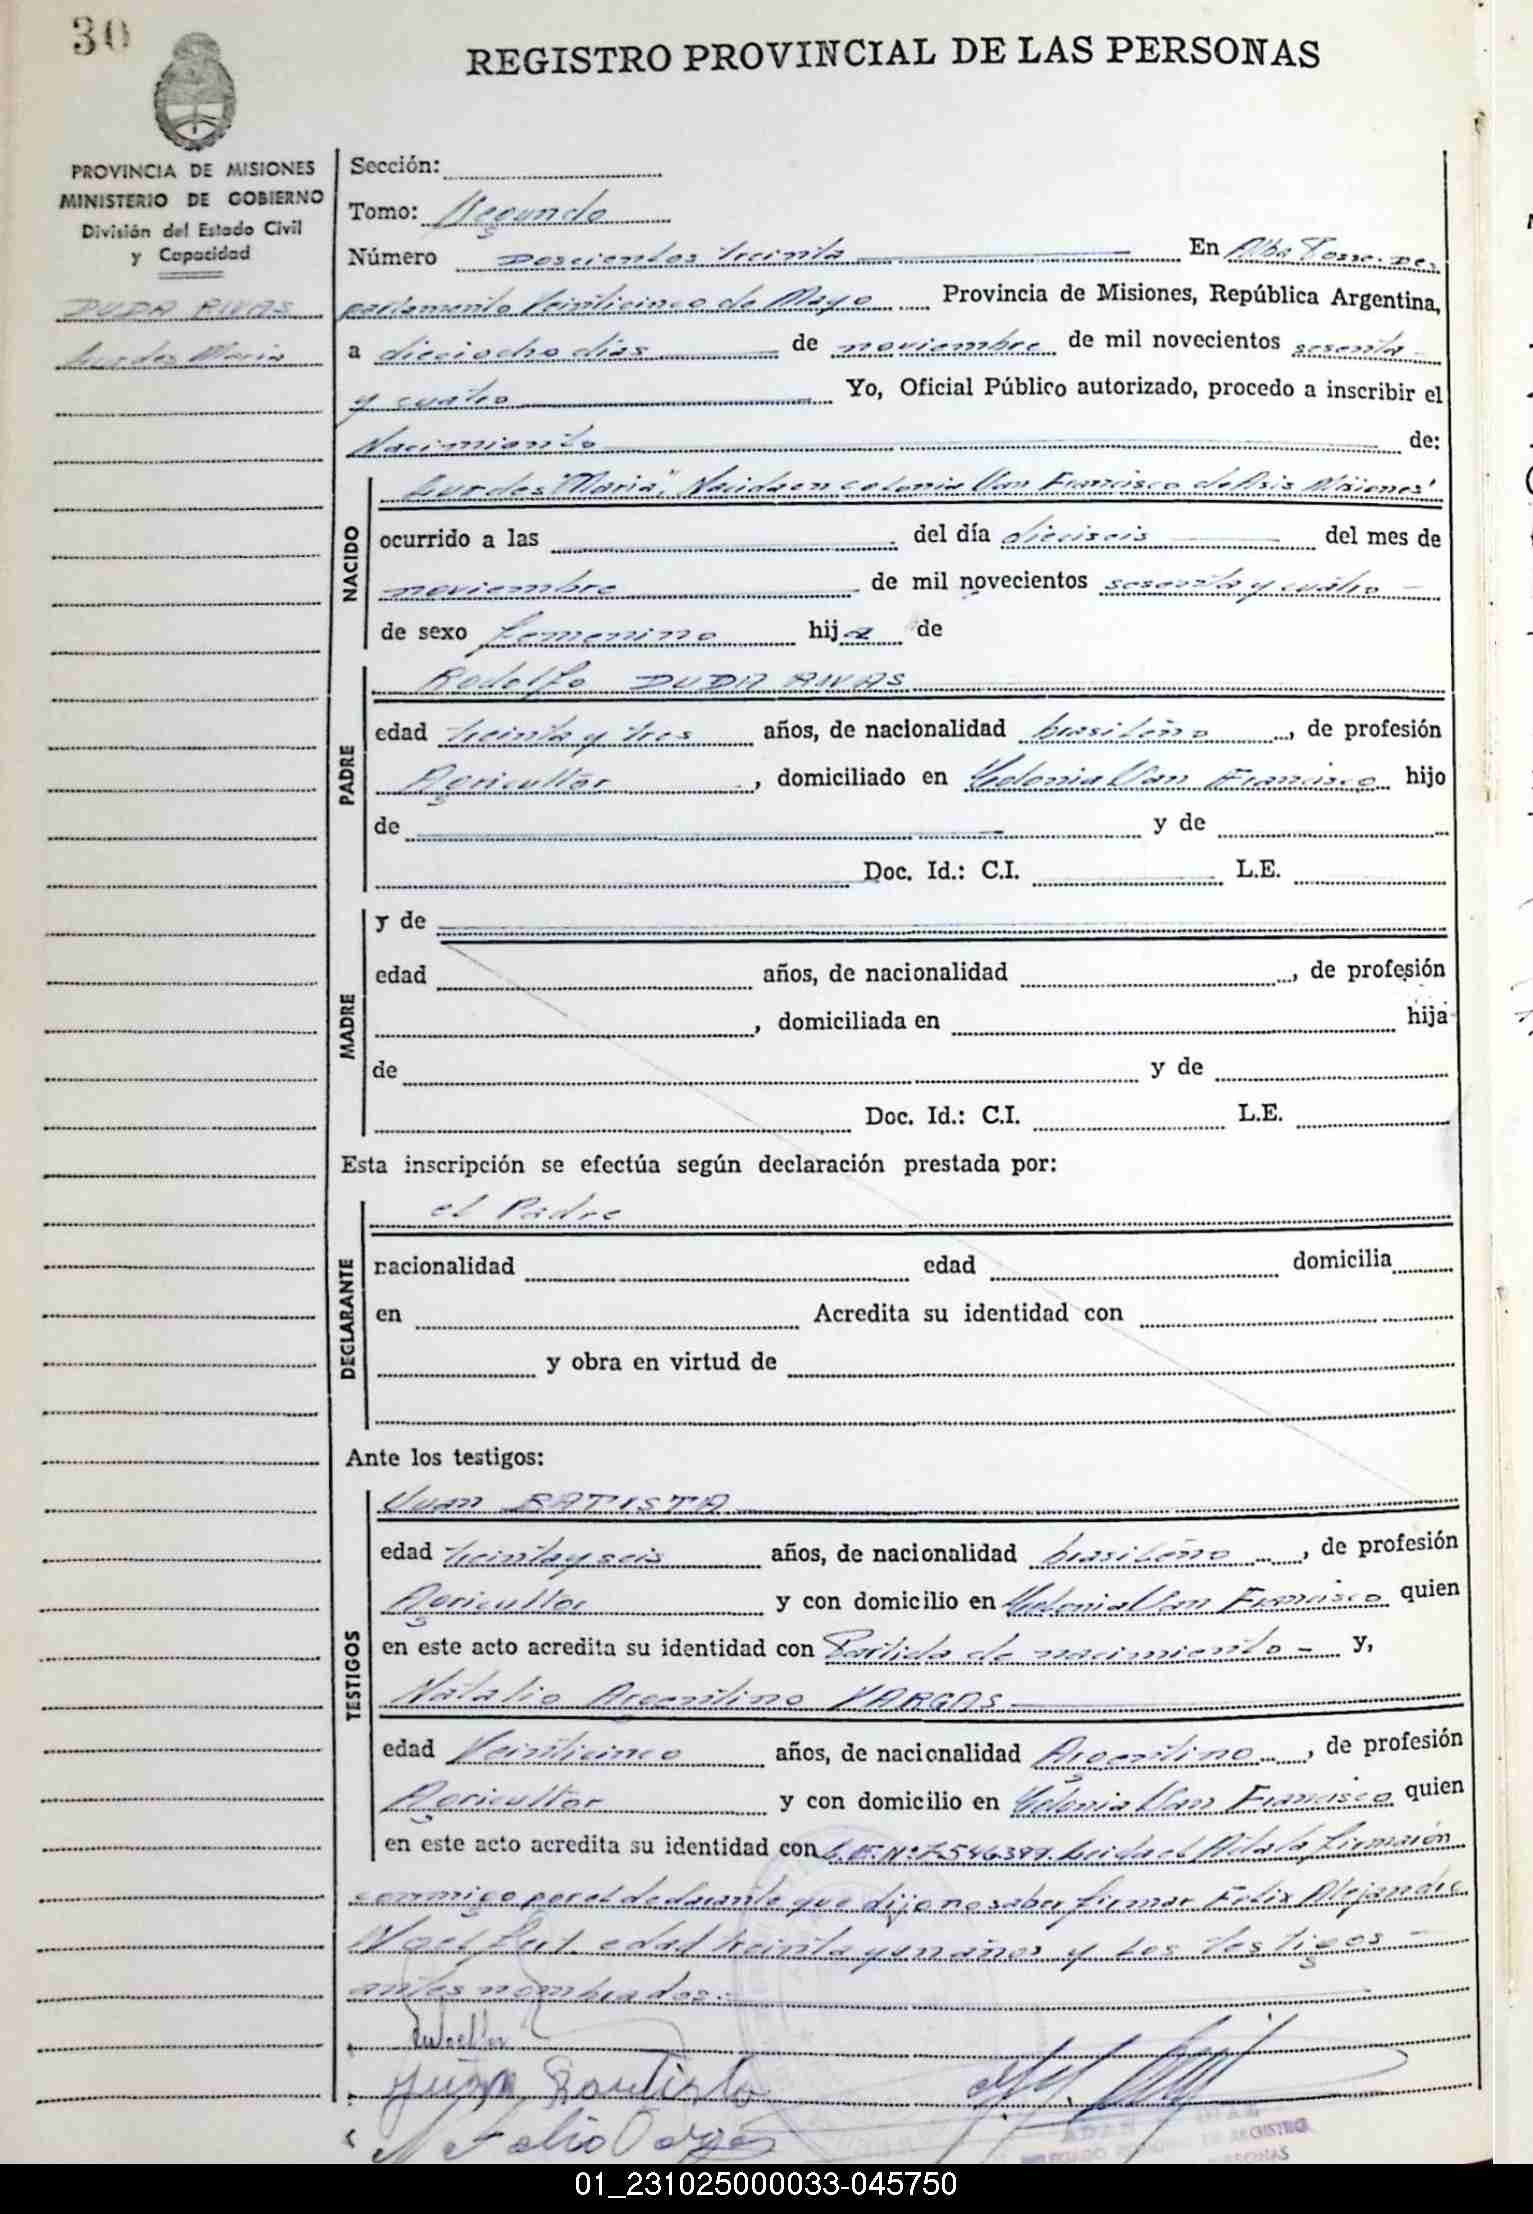 30
REGISTRO PROVINCIAL DE LAS PERSONAS
PROVINCIA DE MISIONES
MINISTERIO DE GOBIERNO
División del Estado Civil
y Capacidad
DUDA RIVAS
Lurdes Maria
Sección:
Tomo: Segundo
Número Doscientos treinta En Alba Posse. De-
partamento Veinticinco de Mayo Provincia de Misiones, República Argentina,
a dieciocho días de noviembre de mil novecientos sesenta
y cuatro Yo, Oficial Público autorizado, procedo a inscribir el
Nacimiento de:
NACIDO
Lurdes "Maria", Nacida en colonia San Francisco de Asis Misiones
ocurrido a las del día dieciseis del mes de
noviembre de mil novecientos sesenta y cuatro
de sexo femenino hija de
PADRE
Rodolfo DUDA RIVAS
edad treinta y tres años, de nacionalidad brasileño, de profesión
Agricultor, domiciliado en Colonia San Francisco hijo
de y de
Doc. Id.: C.I. L.E.
MADRE
y de
edad años, de nacionalidad , de profesión
, domiciliada en hija
de y de
Doc. Id.: C.I. L.E.
Esta inscripción se efectúa según declaración prestada por:
DECLARANTE
el Padre
nacionalidad edad domicilia
en Acredita su identidad con
y obra en virtud de
Ante los testigos:
TESTIGOS
Juan BATISTA
edad treinta y seis años, de nacionalidad brasileño, de profesión
Agricultor y con domicilio en Colonia San Francisco quien
en este acto acredita su identidad con Partida de nacimiento y,
Natalio Argentino VARGAS
edad Veinticinco años, de nacionalidad Argentino, de profesión
Agricultor y con domicilio en Colonia San Francisco quien
en este acto acredita su identidad con L.E. Nº 7546399. Leida el Acta la firmaron
conmigo por el declarante que dijo no saber firmar Felix Alejandro
edad treinta y un años y los testigos
antes nombrados.-
Juan Bautista
Natalio Vargas
01_231025000033-045750